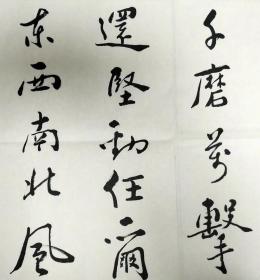 千磨萬擊
還堅勁任爾
东西南北风